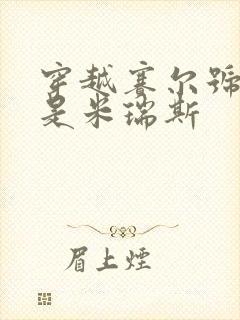 穿越赛尔号
是米瑞斯
眉上煙